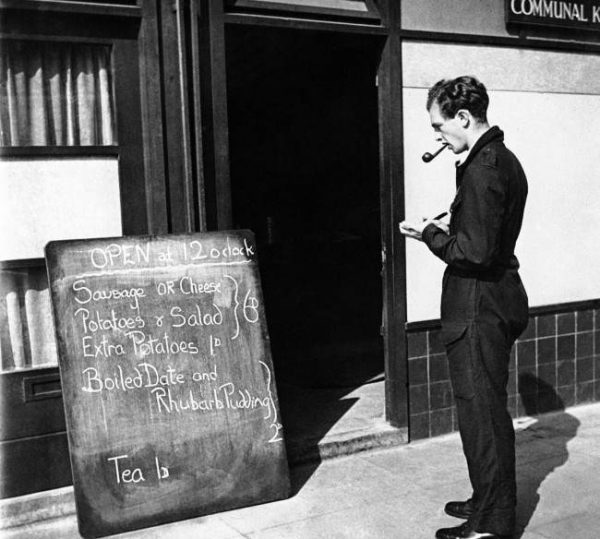 COMMUNAL K
OPEN at 12 oclock
Sausage OR Cheese
Potatoes & Salad } 6D
Extra Potatoes 1D
Boiled Date and
Rhubarb Pudding }
2D
Tea 1D